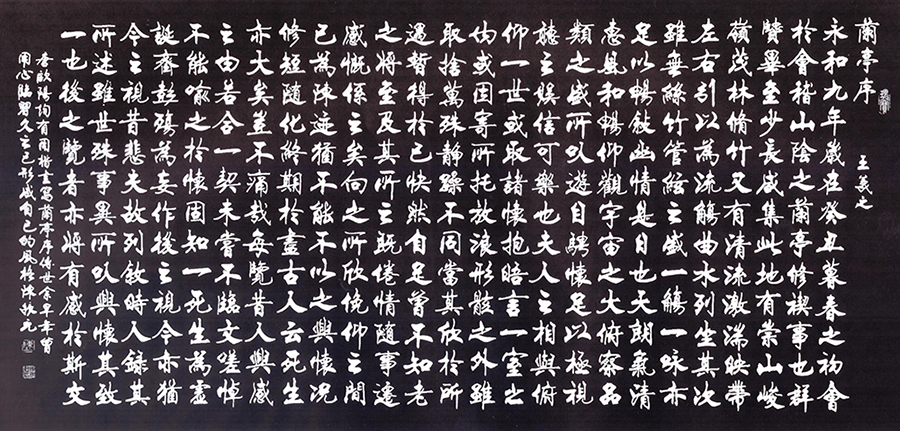 蘭亭序 王羲之
永和九年歲在癸丑暮春之初會
於會稽山陰之蘭亭修禊事也群
賢畢至少長咸集此地有崇山峻
嶺茂林脩竹又有清流激湍映帶
左右引以為流觴曲水列坐其次
雖無絲竹管絃之盛一觴一咏亦
足以暢敘幽情是日也天朗氣清
惠風和暢仰觀宇宙之大俯察品
類之盛所以遊目騁懷足以極視
聽之娛信可樂也夫人之相與俯
仰一世或取諸懷抱晤言一室之
內或因寄所托放浪形骸之外雖
取捨萬殊靜躁不同當其欣於所
遇暫得於己快然自足曾不知老
之將至及其所之既倦情隨事遷
感慨係之矣向之所欣俛仰之間
已為陳迹猶不能不以之興懷況
修短隨化終期於盡古人云死生
亦大矣豈不痛哉每覽昔人興感
之由若合一契未嘗不臨文嗟悼
不能喻之於懷固知一死生為虛
誕齊彭殤為妄作後之視今亦猶
今之視昔悲夫故列敘時人錄其
所述雖世殊事異所以興懷其致
一也後之覽者亦將有感於斯文
歐陽詢有用楷書寫蘭亭序傳世余早年曾
用心臨習久之已形成自己的風格陳